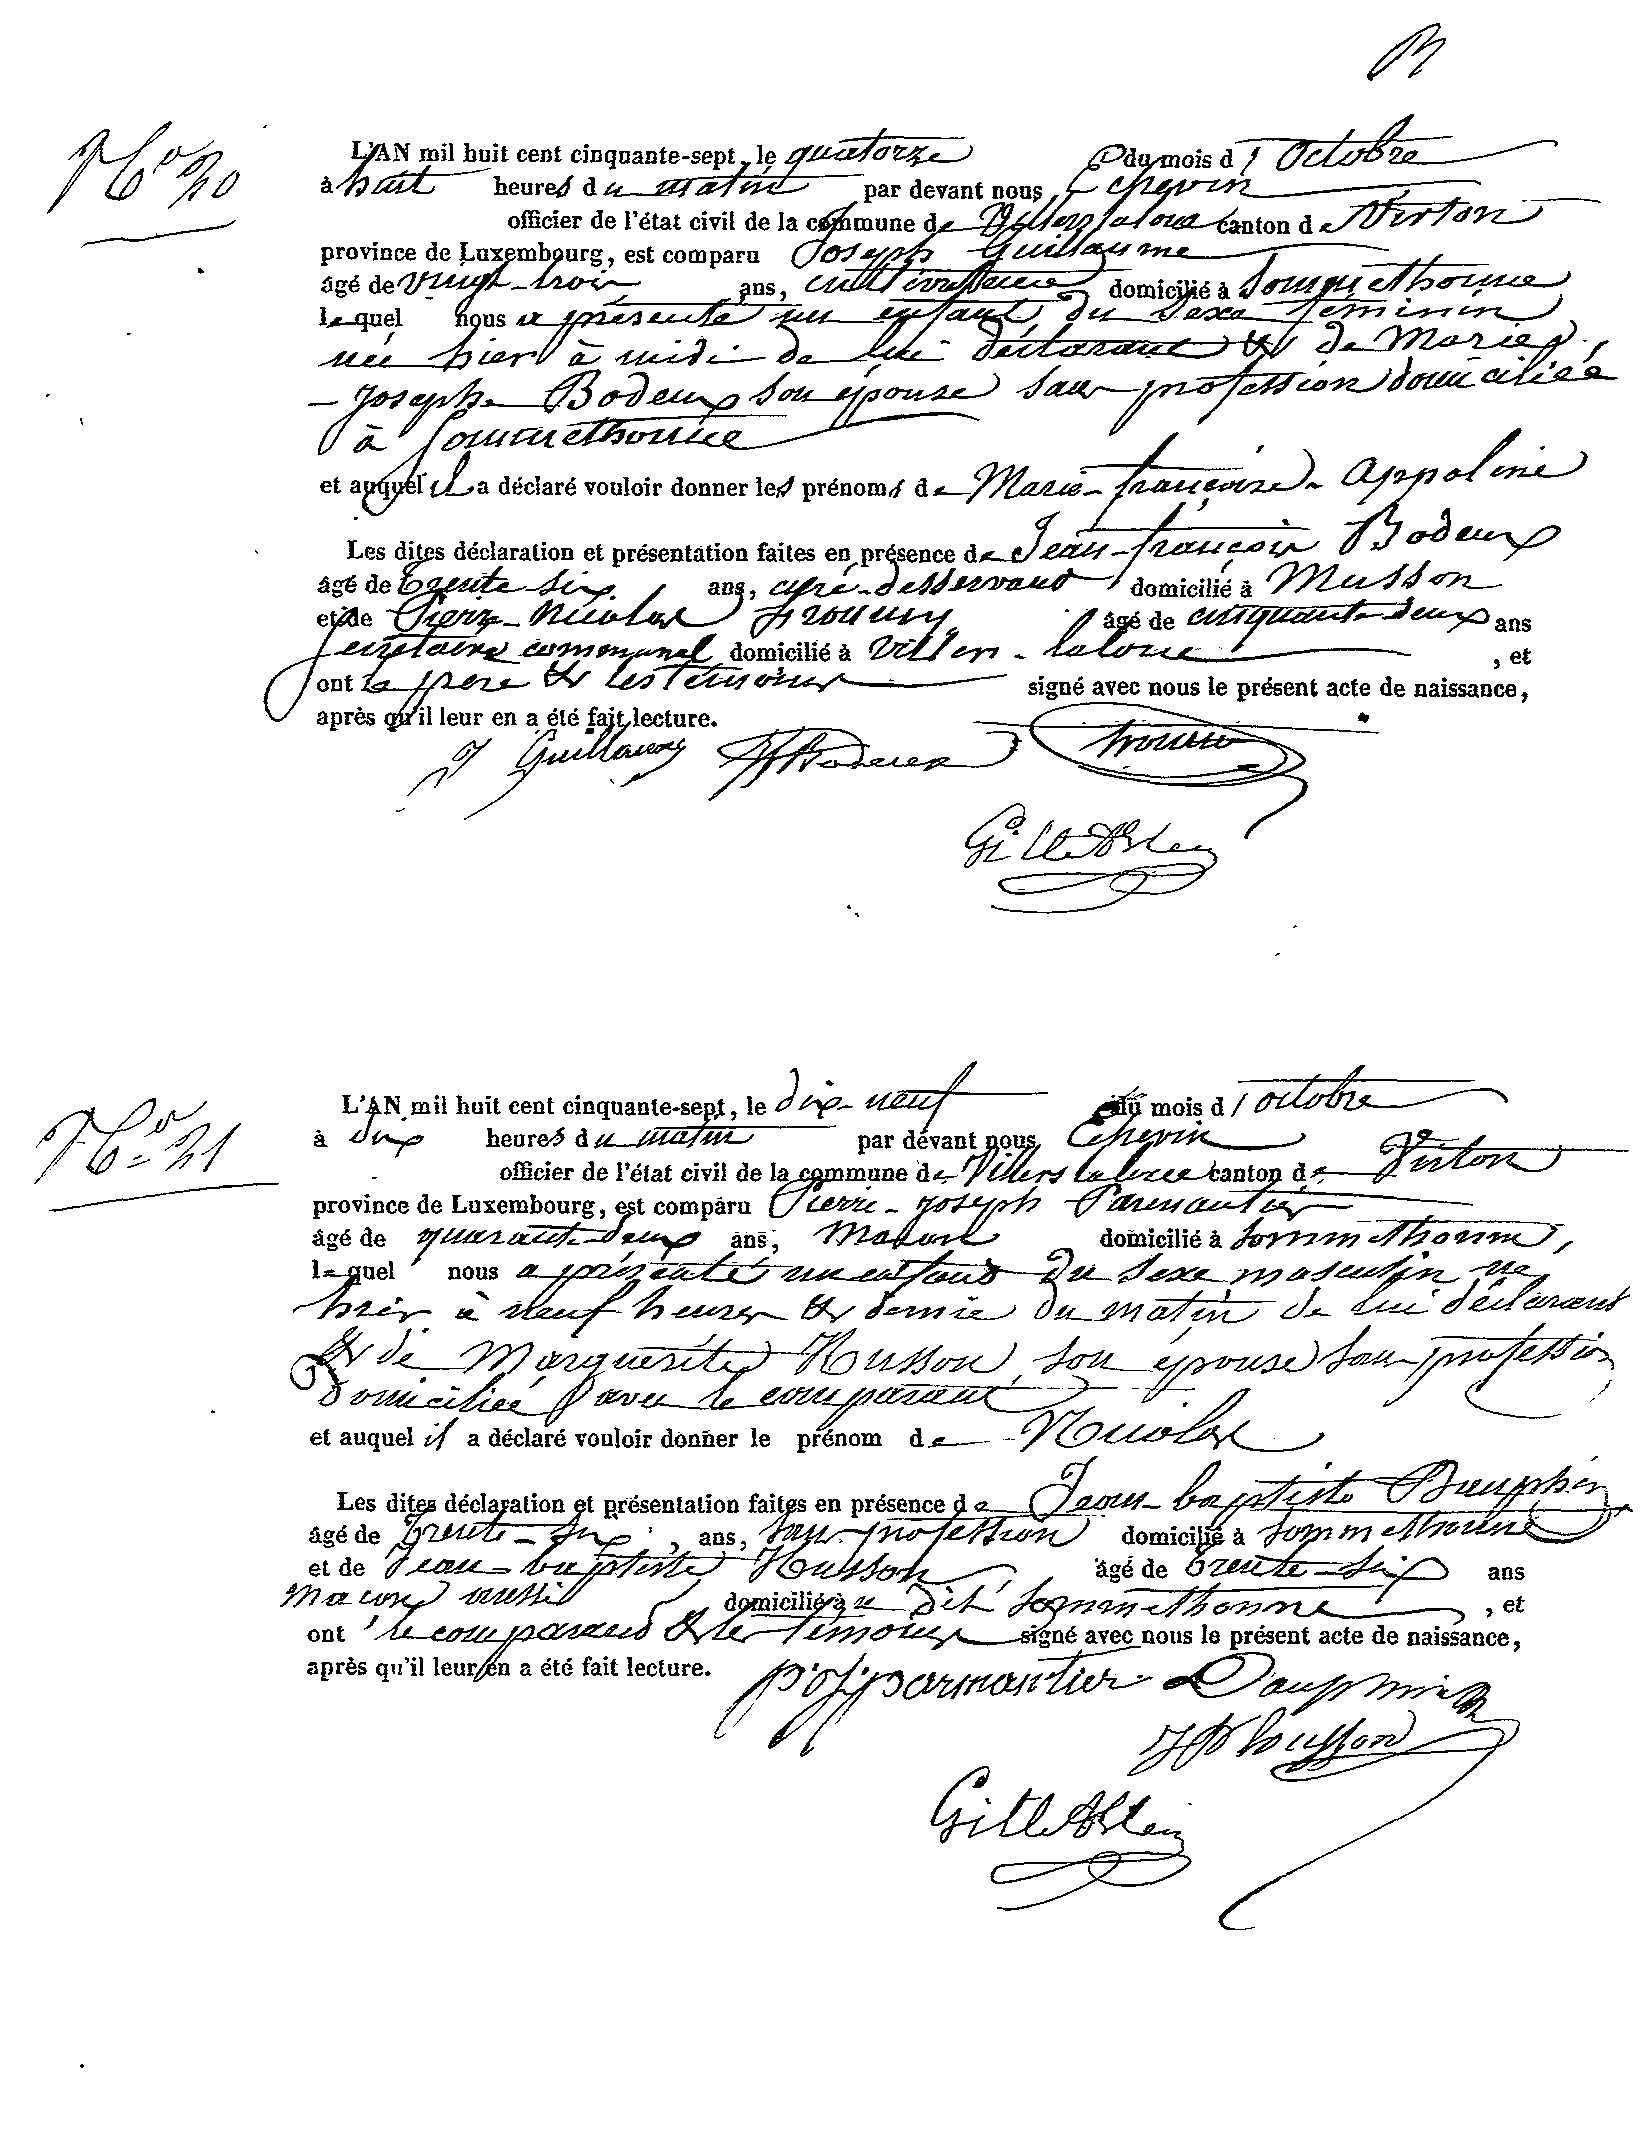 No 20
L'AN mil huit cent cinquante-sept, le quatorze du mois d'Octobre
à huit heures du matin par devant nous, Echevin
officier de l'état civil de la commune de Villers laloue canton de Virton
province de Luxembourg, est comparu Joseph Guillaume
âgé de vingt-trois ans, domicilié à Sommethonne
lequel nous a présenté un enfant du sexe féminin
née hier à midi de lui déclarant & de Marie
- Josephe Bodeux son épouse sans profession domiciliée
à Sommethonne
et auquel il a déclaré vouloir donner les prénoms de Marie-françoise-Appoline
Les dites déclaration et présentation faites en présence de Jean-françois Bodeux
âgé de trente six ans, curé-desservant domicilié à Musson
et de Pierre-Nicolas âgé de cinquante-deux ans
secrétaire communal domicilié à Villers-laloue , et
ont le père & les témoins signé avec nous le présent acte de naissance,
après qu'il leur en a été fait lecture.
J Guillaume JF Bodeux
No 21
L'AN mil huit cent cinquante-sept, le dix-neuf du mois d'octobre
à dix heures du matin par devant nous, Echevin
officier de l'état civil de la commune de Villers laloue canton de Virton
province de Luxembourg, est comparu Pierre-Joseph Parmantier
âgé de quarante-deux ans, Maçon domicilié à Sommethonne,
lequel nous a présenté un enfant du sexe masculin né
hier à neuf heures & demie du matin de lui déclarant
& de Marguerite Husson, son épouse sans profession
domiciliée avec le comparant
et auquel il a déclaré vouloir donner le prénom de Nicolas
Les dites déclaration et présentation faites en présence de Jean-baptiste Dauphin
âgé de trente-six, ans, sans profession domicilié à Sommethonne
et de Jean-baptiste Husson âgé de trente-six ans
maçon aussi domicilié au dit Sommethonne , et
ont le comparant & les témoins signé avec nous le présent acte de naissance,
après qu'il leur en a été fait lecture.
p.j. parmantier Dauphin
JB husson